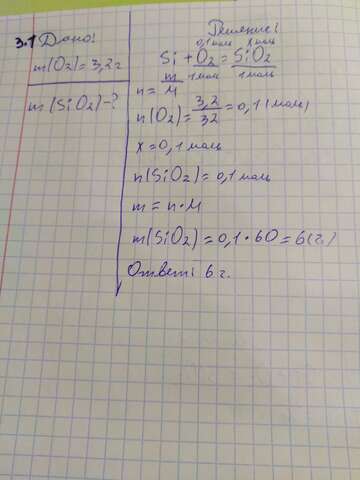 3.1 Дано:
m(O₂)=3,2г
m(SiO₂)-?
Решение:
0,1моль x моль
Si + O₂ = SiO₂
1моль 1моль
n = m/M
n(O₂) = 3,2/32 = 0,1(моль)
x = 0,1 моль
n(SiO₂) = 0,1 моль
m = n·M
m(SiO₂) = 0,1·60 = 6(г.)
Ответ: 6 г.